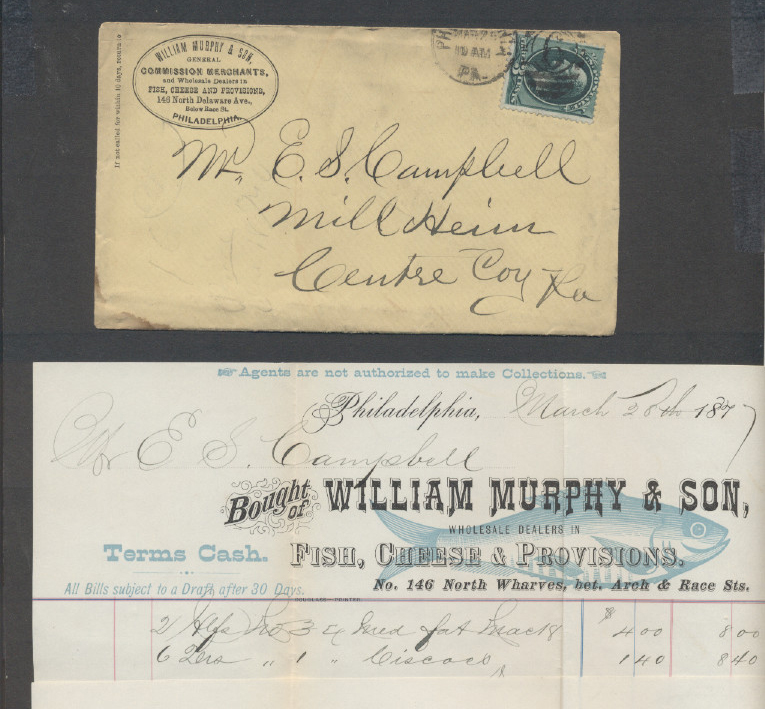 If not called for within 10 days, return to
WILLIAM MURPHY & SON,
GENERAL
COMMISSION MERCHANTS,
and Wholesale Dealers in
FISH, CHEESE AND PROVISIONS,
146 North Delaware Ave.,
Below Race St.
PHILADELPHIA.
10 AM
PA.
Mr. E. S. Campbell
Mill Heim
Centre Coy Pa
Agents are not authorized to make Collections.
Philadelphia, March 28th 1877
Mr E S. Campbell
Bought of WILLIAM MURPHY & SON,
WHOLESALE DEALERS IN
Terms Cash. FISH, CHEESE & PROVISIONS.
No. 146 North Wharves, bet. Arch & Race Sts.
All Bills subject to a Draft, after 30 Days.
DOUGLASS—PRINTER
2 Hfs No 3 fat Mack $ 4 00 8 00
6 " 1 " Ciscoes 1 40 8 40